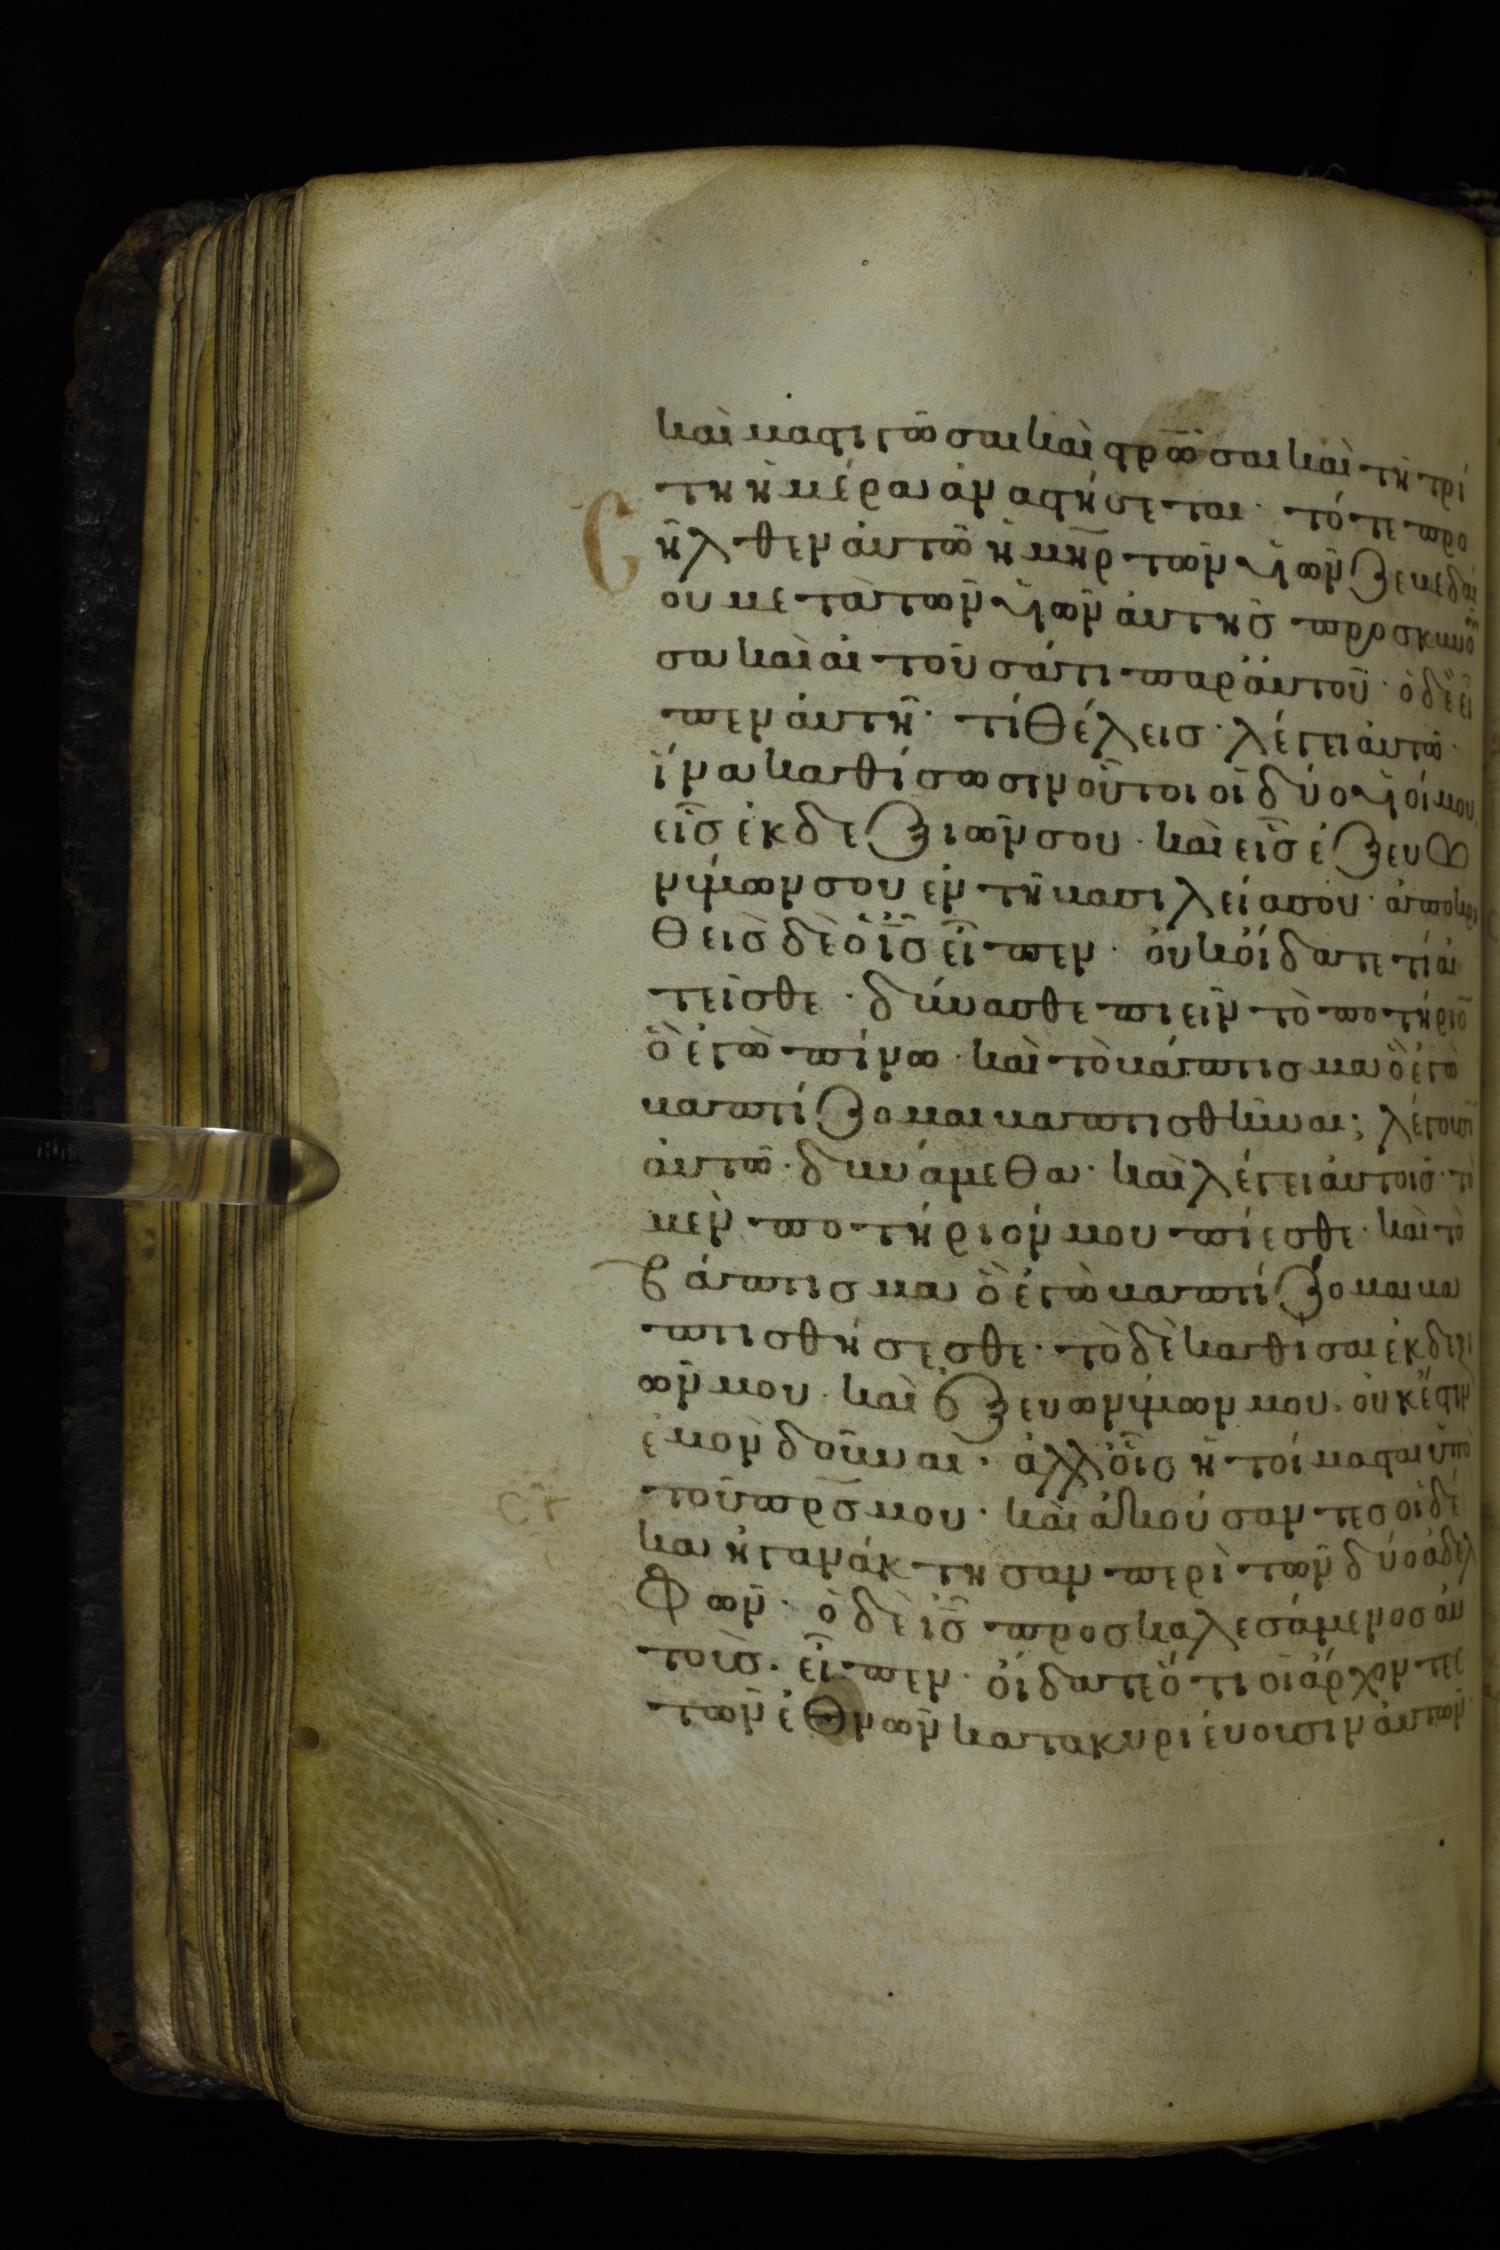 καὶ μαστιγῶσαι καὶ στρῶσαι καὶ τῆ τρί
τη ἡμέρα ἀναστήσεται· τότε προ
σῆλθεν αὐτῶ ἡ μηρ τῶν υἱῶν Ζεβεδαί
ου μετὰ τῶν υἱῶν αὐτῆς προσκυνοῦ
σα καὶ αἰτοῦσά τι παρ' αὐτοῦ· ὁ δὲ εἶ
πεν αὐτῆ· τί θέλεις· λέγει αὐτῶ·
ἵνα καθίσωσιν οὗτοι οἱ δύο υἱοί μου
εἷς ἐκ δεξιῶν σου· καὶ εἷς ἐξ εὐω
νύμων σου ἐν τῆ βασιλεία σου· ἀποκρι
θεὶς δὲ ὁ ις εἶπεν· οὐκ οἴδατε τί αἰ
τεῖσθε· δύνασθε πιεῖν τὸ ποτήριον
ὃ ἐγὼ πίνω· καὶ τὸ βάπτισμα ὃ ἐγὼ
βαπτίζομαι βαπτισθῆναι; λέγουσιν
αὐτῶ· δυνάμεθα· καὶ λέγει αὐτοῖς· τὸ
μὲν ποτήριόν μου πίεσθε· καὶ τὸ
βάπτισμα ὃ ἐγὼ βαπτίζομαι βα
πτισθήσεσθε· τὸ δὲ καθίσαι ἐκ δεξι
ῶν μου· καὶ ἐξ εὐωνύμων μου· οὐκ ἔστιν
ἐμὸν δοῦναι· ἀλλ' οἷς ἡτοίμασται ὑπὸ
τοῦ πρσ μου· καὶ ἀκούσαντες οἱ δέ
κα ἠγανάκτησαν περὶ τῶν δύο ἀδελ
φῶν· ὁ δὲ ις προσκαλεσάμενος αὐ
τοὺς· εἶπεν· οἴδατε ὅτι οἱ ἄρχοντες
τῶν ἐθνῶν κατακυριεύουσιν αὐτῶν